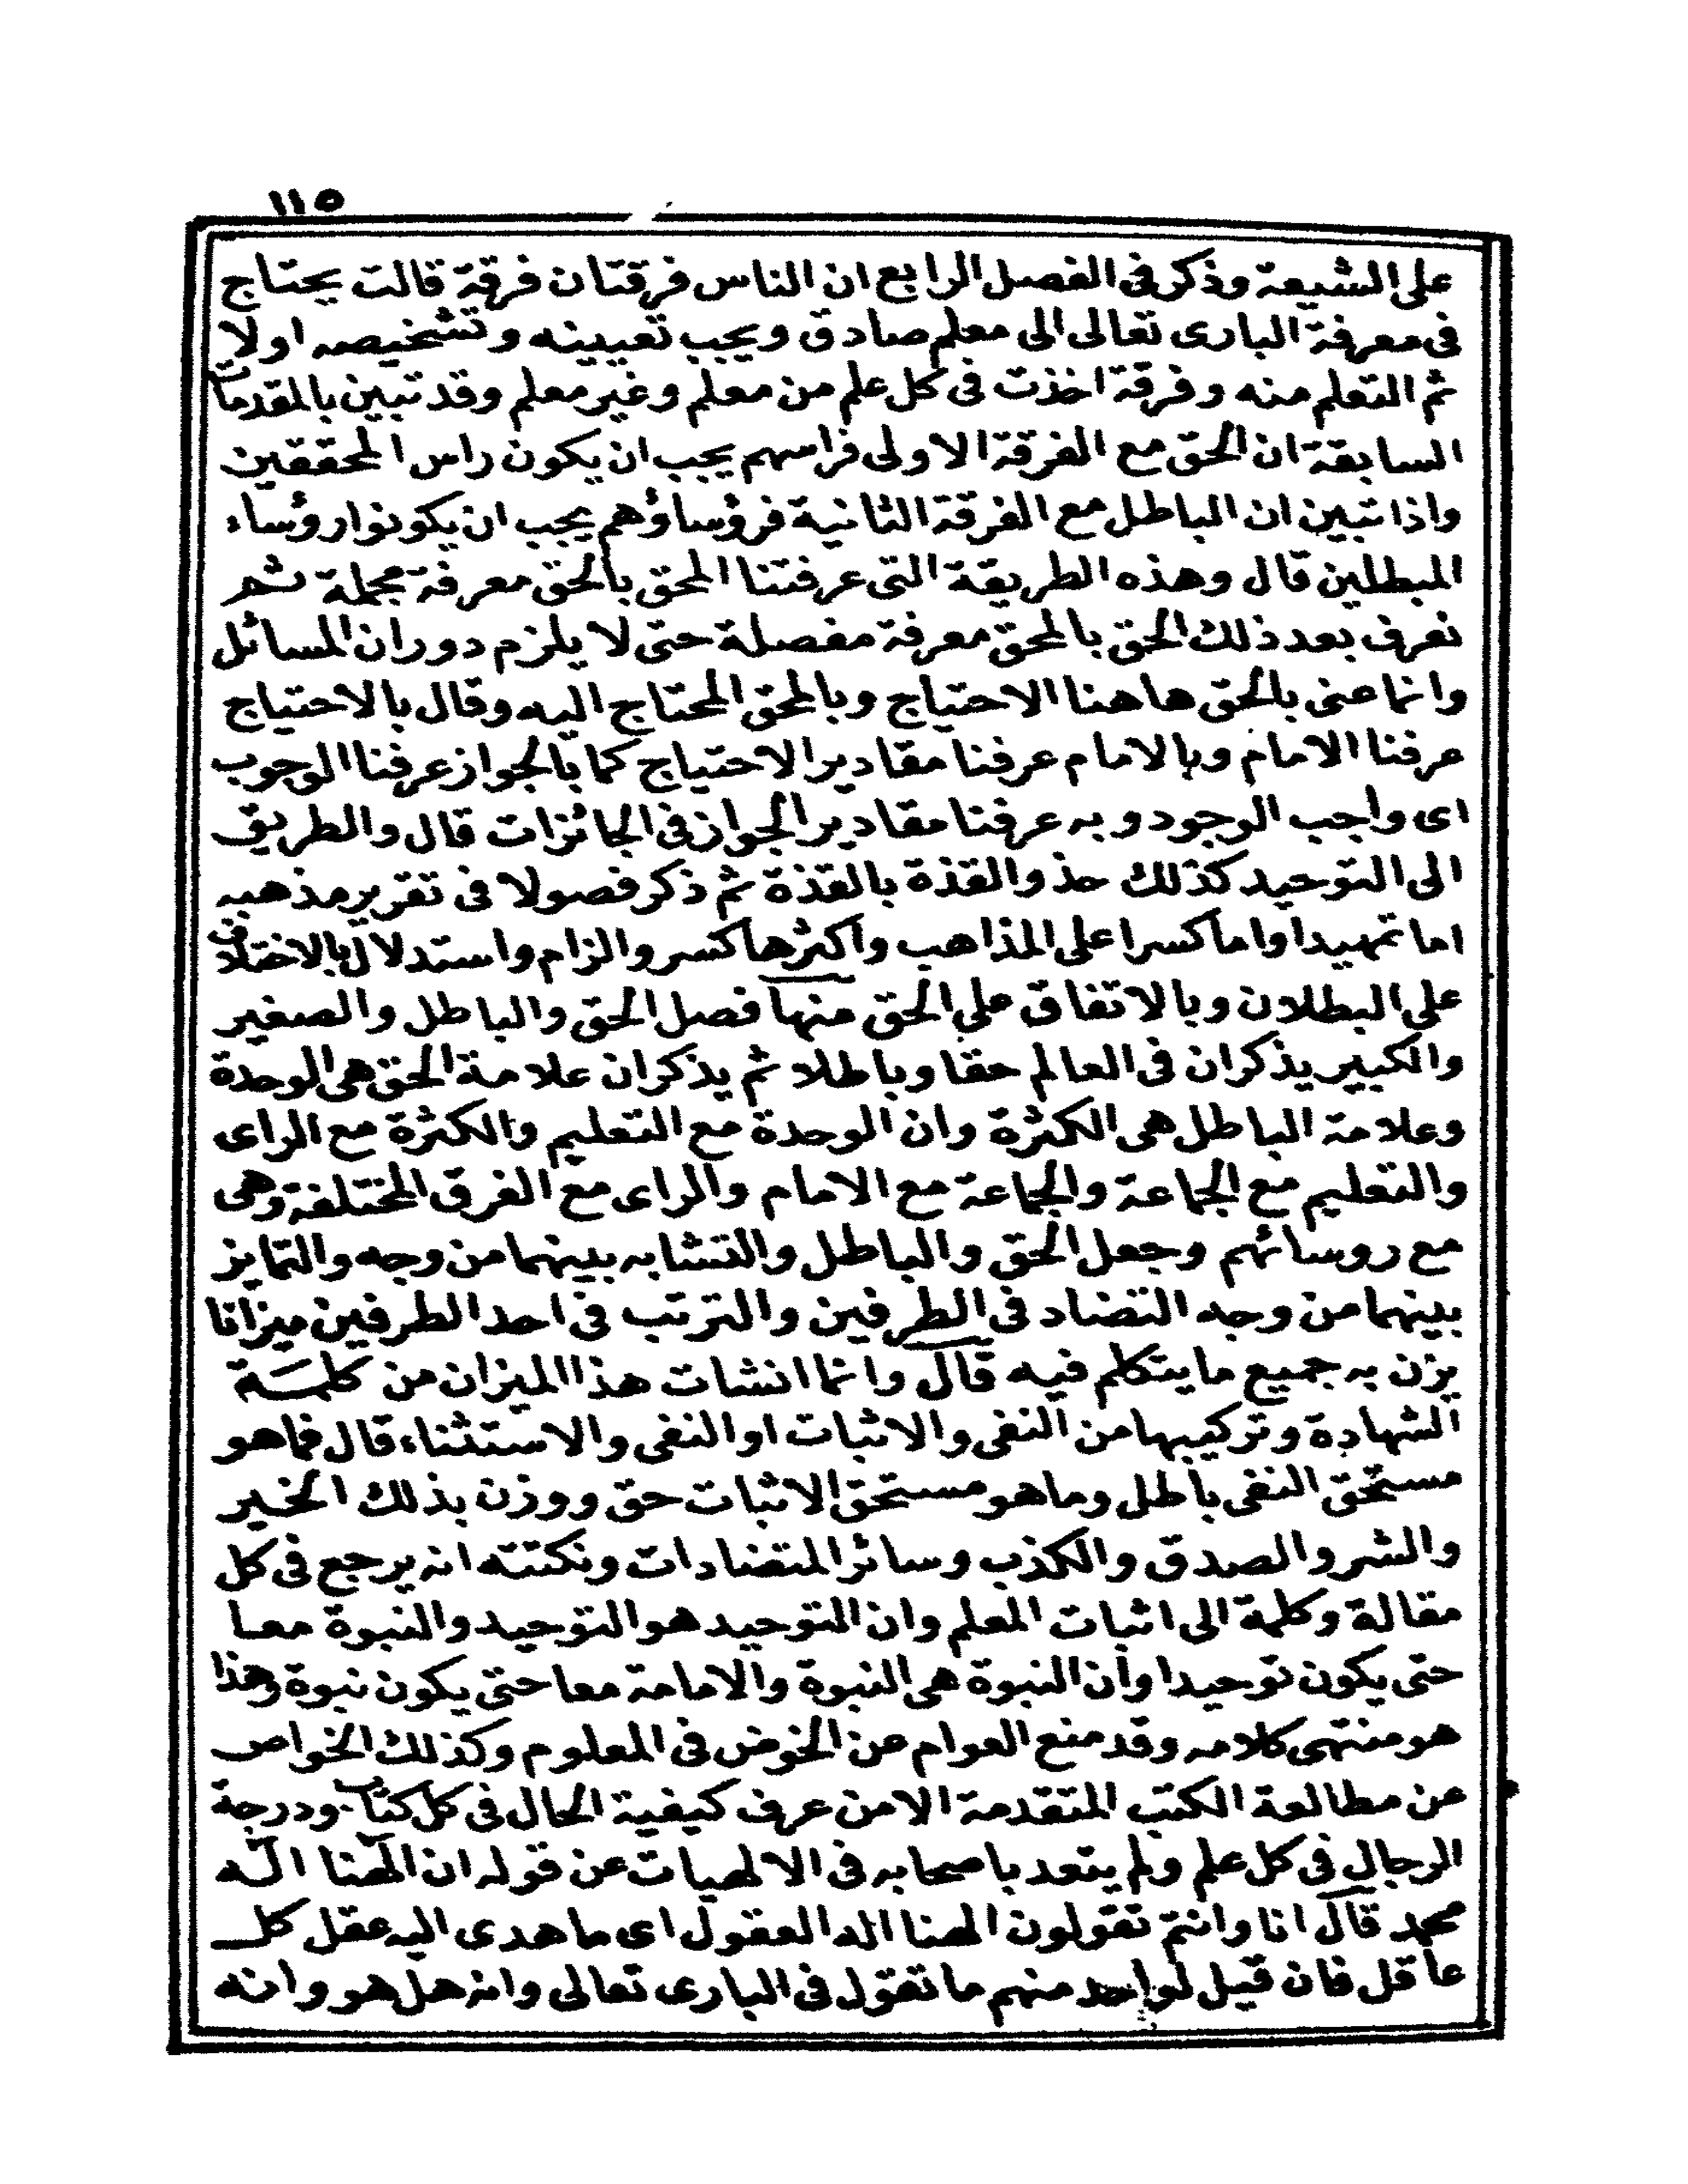 ١١٥
على الشيعة وذكر فى الفصل الرابع ان الناس فرقتان فرقة قالت يحتاج
فى معرفة البارى تعالى الى معلم صادق ويجب تعيينه وتشخيصه اولا
ثم التعلم منه وفرقة اخذت فى كل علم من معلم وغير معلم وقد تبين بالمقدمات
السابقة ان الحق مع الفرقة الاولى فراسهم يجب ان يكون راس المحققين
واذا تبين ان الباطل مع الفرقة الثانية فرؤساؤهم يجب ان يكونوا رؤساء
المبطلين قال وهذه الطريقة التى عرفتنا المحق بالحق معرفة مجملة ثم
نعرف بعد ذلك الحق بالمحق معرفة مفصلة حتى لا يلزم دوران المسائل
وانما عنى بالحق هاهنا الاحتياج وبالمحق المحتاج اليه وقال بالاحتياج
عرفنا الامام وبالامام عرفنا مقادير الاحتياج كما بالجواز عرفنا الوجوب
اى واجب الوجود وبه عرفنا مقادير الجواز فى الجائزات قال والطريق
الى التوحيد كذلك حذو القذة بالقذة ثم ذكر فصولا فى تقرير مذهبه
اما تمهيدا واما كسرا على المذاهب واكثرها كسر والزام واستدلال بالاختلاف
على البطلان وبالاتفاق على الحق منها فصل الحق والباطل والصغير
والكبير يذكر ان فى العالم حقا وباطلا ثم يذكر ان علامة الحق هى الوحدة
وعلامة الباطل هى الكثرة وان الوحدة مع التعليم والكثرة مع الراى
والتعليم مع الجماعة والجماعة مع الامام والراى مع الفرق المختلفة وهى
مع روسائهم وجعل الحق والباطل والتشابه بينهما من وجه والتمايز
بينهما من وجه التضاد فى الطرفين والترتب فى احد الطرفين ميزانا
يزن به جميع ما يتكلم فيه قال وانما انشات هذا الميزان من كلمة
الشهادة وتركيبها من النفى والاثبات او النفى والاستثناء قال فما هو
مستحق النفى باطل وما هو مستحق الاثبات حق ووزن بذلك الخير
والشر والصدق والكذب وسائر المتضادات ونكتته انه يرجع فى كل
مقالة وكلمة الى اثبات المعلم وان التوحيد هو التوحيد والنبوة معا
حتى يكون توحيدا وان النبوة هى النبوة والامامة معا حتى يكون نبوة وهذا
هو منتهى كلامه وقد منع العوام عن الخوض فى المعلوم وكذلك الخواص
عن مطالعة الكتب المتقدمة الا من عرف كيفية الحال فى كل كتاب ودرجة
الرجال فى كل علم ولم يتعد باصحابه فى الالهيات عن قوله ان الهنا اله
محمد قال انا وانتم تقولون الهنا اله العقول اى ما هدى اليه عقل كل
عاقل فان قيل لواحد منهم ما تقول فى البارى تعالى وانه هل هو وانه